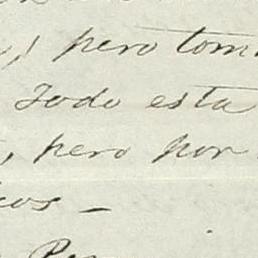 , pero tom
Todo esta
, pero por
cos –
Per